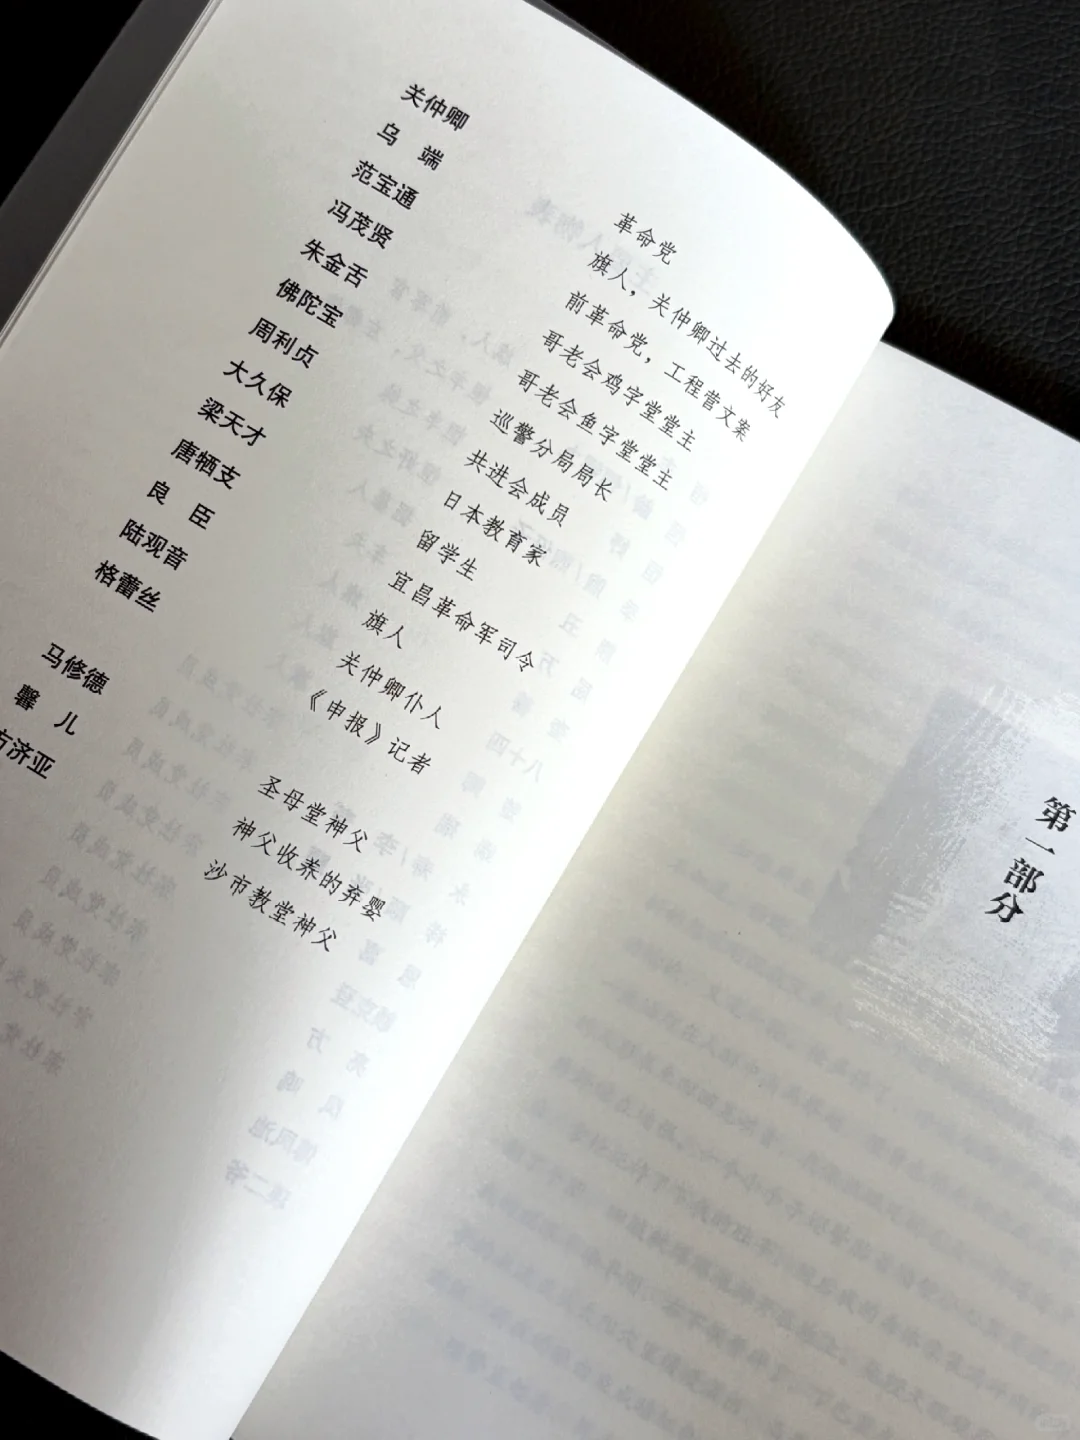 关仲卿 革命党
乌端 旗人，关仲卿过去的好友
范宝通 前革命党，工程营文案
冯茂贤 哥老会鸡字堂堂主
朱金舌 哥老会鱼字堂堂主
佛陀宝 巡警分局局长
周利贞 共进会成员
大久保 日本教育家
梁天才 留学生
唐牺支 宜昌革命军司令
良臣 旗人
陆观音 关仲卿仆人
格蕾丝 《申报》记者
马修德 圣母堂神父
馨儿 神父收养的弃婴
方济亚 沙市教堂神父
第一部分